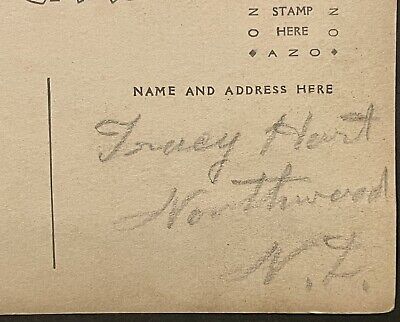 STAMP
HERE
AZO
NAME AND ADDRESS HERE
Tracy Hart
Northwood
N.Y.